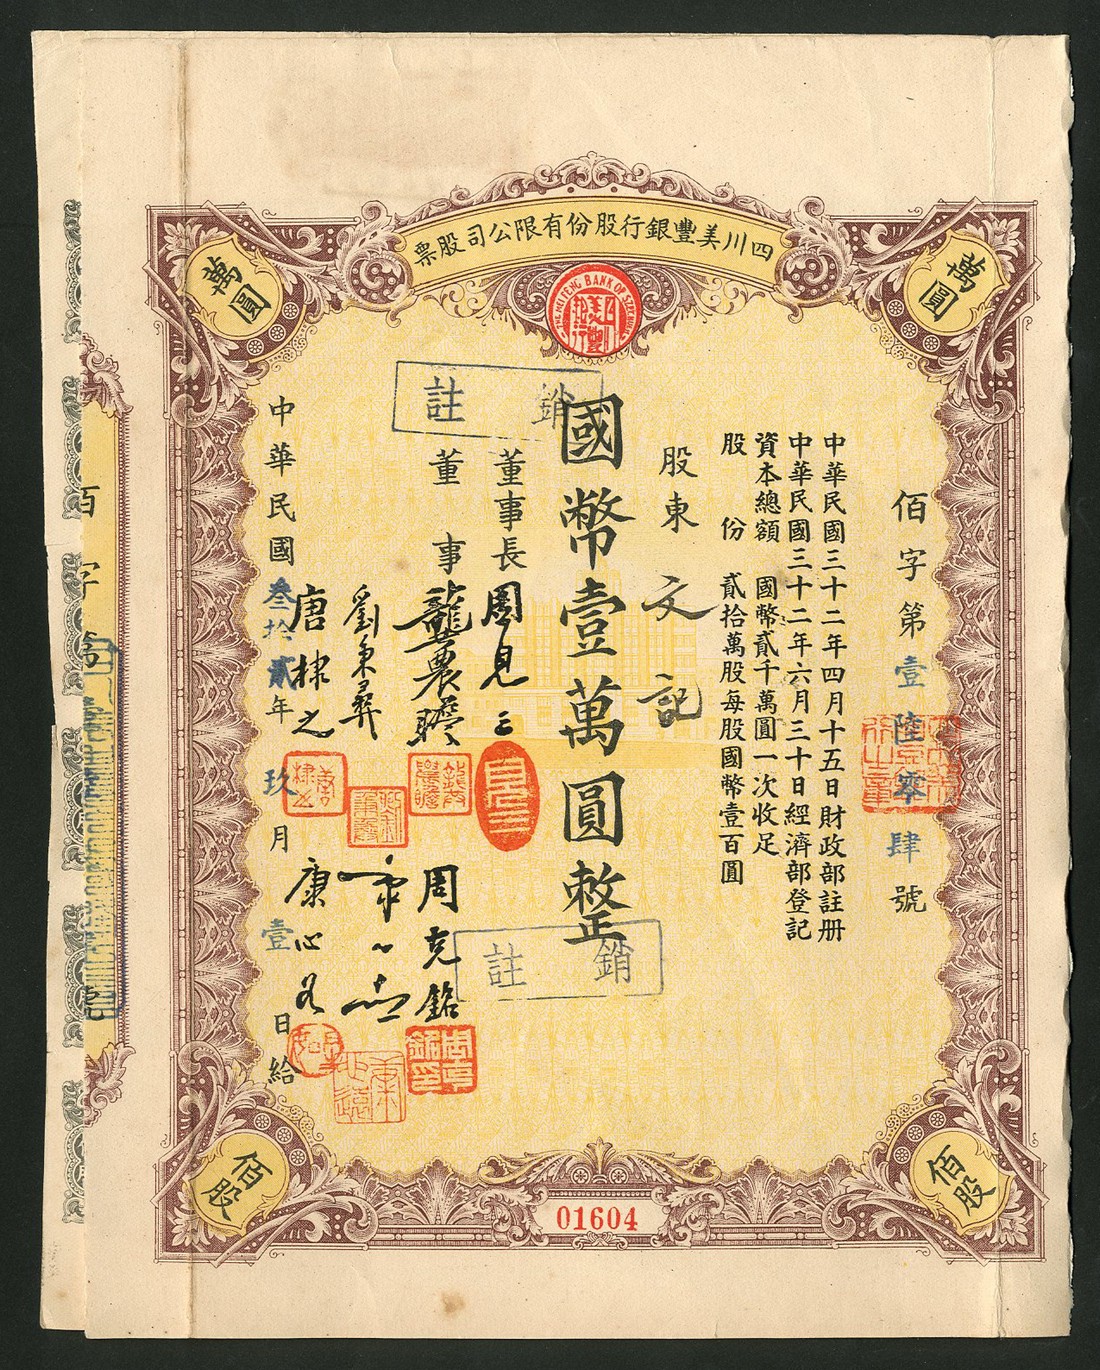 四川美豐銀行股份有限公司股票
THE MEI FENG BANK OF SZECHUAN
四川美豐銀行
萬圓
萬圓
佰字第壹陸零肆號
中華民國三十二年四月十五日財政部註册
中華民國三十二年六月三十日經濟部登記
資本總額 國幣貳千萬圓一次收足
股份 貳拾萬股每股國幣壹百圓
股東 文記
國幣壹萬圓整
銷註
董事長 周見三
董事 龔農瞻
劉東彝
唐棣之
周克銘
康心如
銷註
中華民國叁拾貳年玖月壹日給
佰股
佰股
01604
佰字